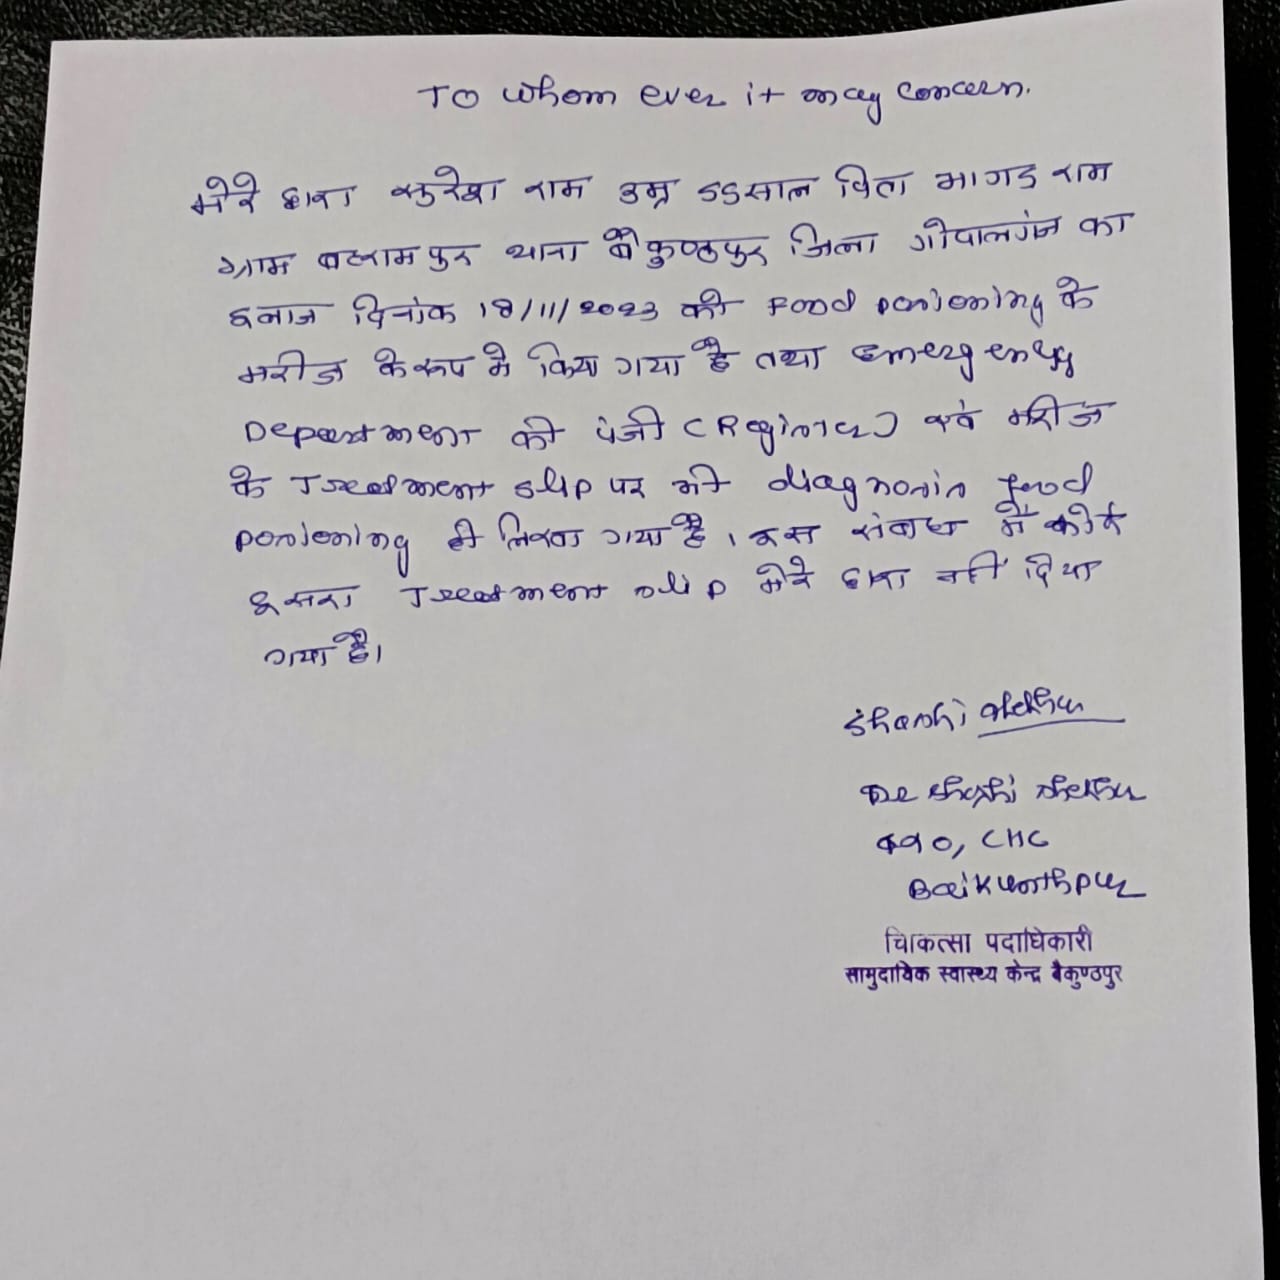 To whom ever it may concern.
मेरे द्वारा सुरेश राम उम्र 55 साल पिता मागड राम
ग्राम बलरामपुर थाना बैकुण्ठपुर जिला गोपालगंज का
इलाज दिनांक 18/11/2023 को Food poisoning के
मरीज के रूप मे किया गया है तथा Emergency
Department की पंजी (Register) एवं मरीज
के Treatment slip पर भी diagnosis food
poisoning ही लिखा गया है। इस संबंध में कोई
दुसरा Treatment slip मेरे द्वारा नहीं दिया
गया है।
Shashi Shekhar
Dr Shashi Shekhar
CHC
Baikunthpur
चिकित्सा पदाधिकारी
सामुदायिक स्वास्थ्य केन्द्र बैकुण्ठपुर